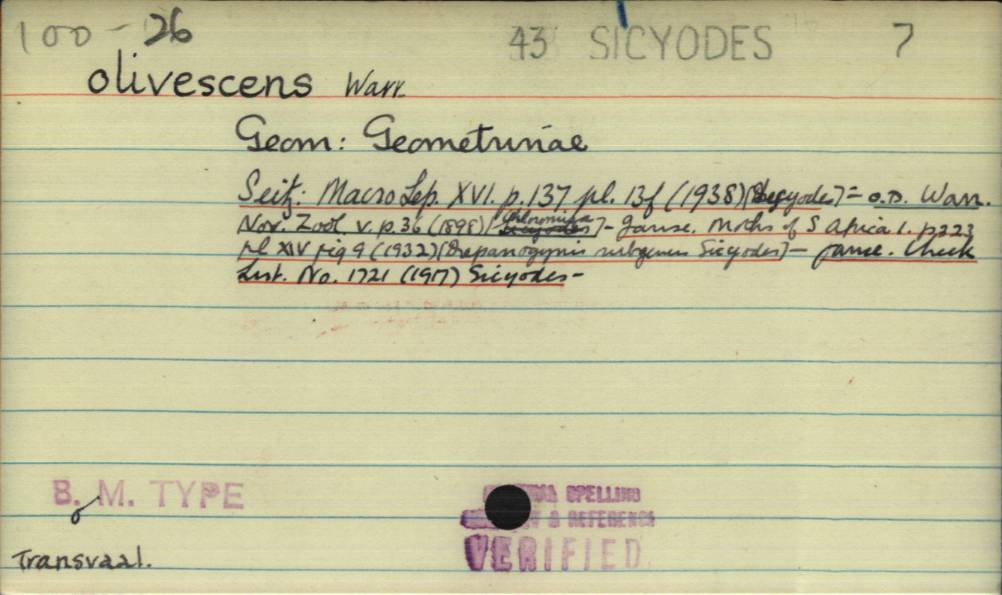 100 - 26 43 SICYODES 7
olivescens Warr.
Geom: Geometrinae
Seitz. Macro Lep. XVI. p.137 pl. 13f (1938) = o.D. Warr.
Nov. Zool. v. p.36 (1898) - Janse. Moths of S Africa 1. p223
pl XIV fig 9 (1932) (Drepanogynis subgenus Sicyodes) - Janse. Check
List. No. 1721 (1917) Sicyodes -
B. M. TYPE
SPELLING
& REFERENCE
VERIFIED
Transvaal.